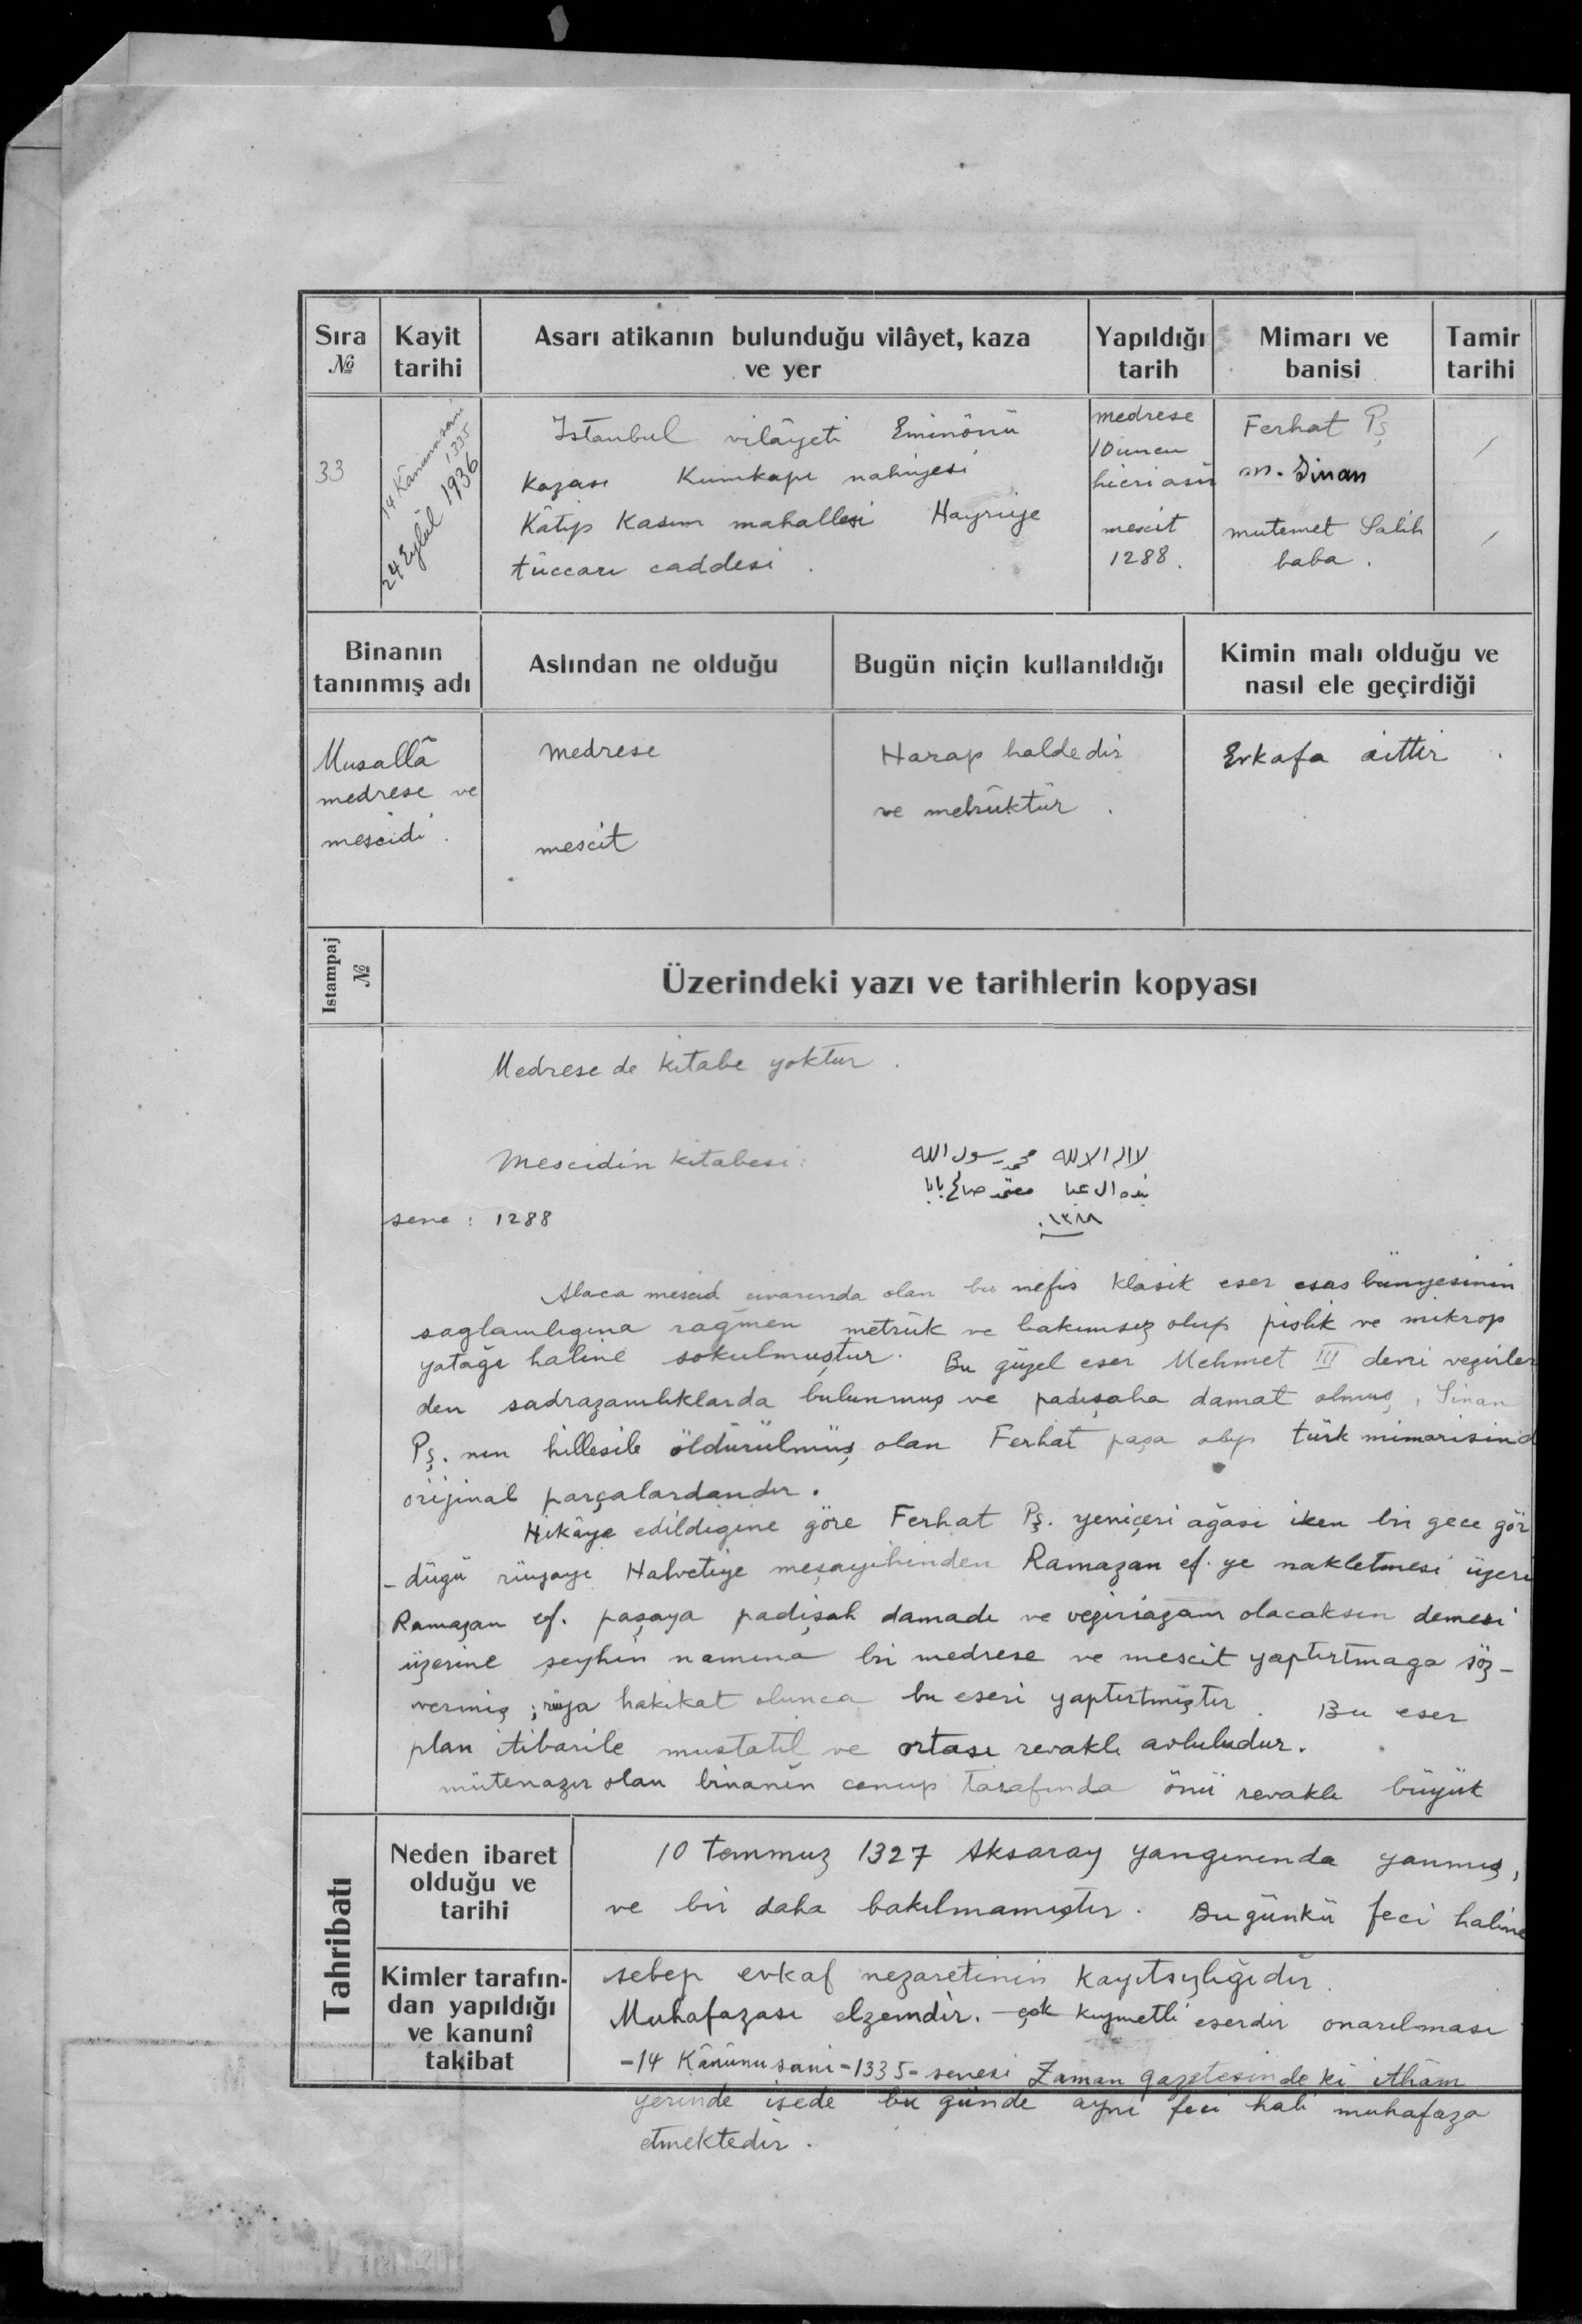 Sıra
№
Kayit
tarihi
Asarı atikanın bulunduğu vilâyet, kaza
ve yer
Yapıldığı
tarih
Mimarı ve
banisi
Tamir
tarihi
33
14 Kânunusani
1335
24 Eylûl 1936
Istanbul vilâyeti Eminönü
kazası Kumkapı nahiyesi
Kâtip Kasım mahallesi Hayriye
tüccarı caddesi .
medrese
10 uncu
hicri asır
mescit
1288.
Ferhat Pş
m. Sinan
mutemet Salih
baba .
Binanın
tanınmış adı
Aslından ne olduğu
Bugün niçin kullanıldığı
Kimin malı olduğu ve
nasıl ele geçirdiği
Musallâ
medrese ve
mescidi .
medrese
mescit
Harap haldedir
ve metrûktür .
Evkafa aittir .
Istampaj
№
Üzerindeki yazı ve tarihlerin kopyası
Medrese de kitabe yoktur .
Mescidin kitabesi:
لااله الا لله محمد رسول الله
بنده ال عبا معتمد صالح بابا
١٢٨٨
sene : 1288
Alaca mescid civarında olan bu nefis klasik eser esas bünyesinin
saglamlıgına rağmen metrûk ve bakımsız olup pislik ve mikrop
yatağı haline sokulmuştur. Bu güzel eser Mehmet III devri vezirler
den sadrazamlıklarda bulunmuş ve padışaha damat olmuş, Sinan
Pş. nın hillesile öldürülmüş olan Ferhat paşa olup türk mimarisind
orijinal parçalardandır.
Hikâye edildigine göre Ferhat Pş. yeniçeri ağası iken bir gece gör
- dügü rüyayı Halvetiye meşayihinden Ramazan ef. ye nakletmesi üzeri
Ramazan ef. paşaya padişah damadı ve veziriazam olacaksın demesi
üzerine şeyhin namına bir medrese ve mescit yaptırtmaga söz-
vermiş ; rüya hakikat olunca bu eseri yaptırtmıştır . Bu eser
plan itibarile mustatil ve ortası revaklı avluludur.
mütenazır olan binanın cenup tarafında önü revaklı büyük
Tahribatı
Neden ibaret
olduğu ve
tarihi
10 temmuz 1327 Aksaray yangınında yanmış,
ve bir daha bakılmamıştır. Bugünkü feci haline
Kimler tarafın-
dan yapıldığı
ve kanunî
takibat
sebep evkaf nezaretinin kayıtsızlığıdır.
Muhafazası elzemdir. - çok kıymetli eserdir onarılması
-14 Kânûnusani-1335- senesi Zaman gazetesinde ki itham
yerinde isede bu günde aynı feci hali muhafaza
etmektedir .